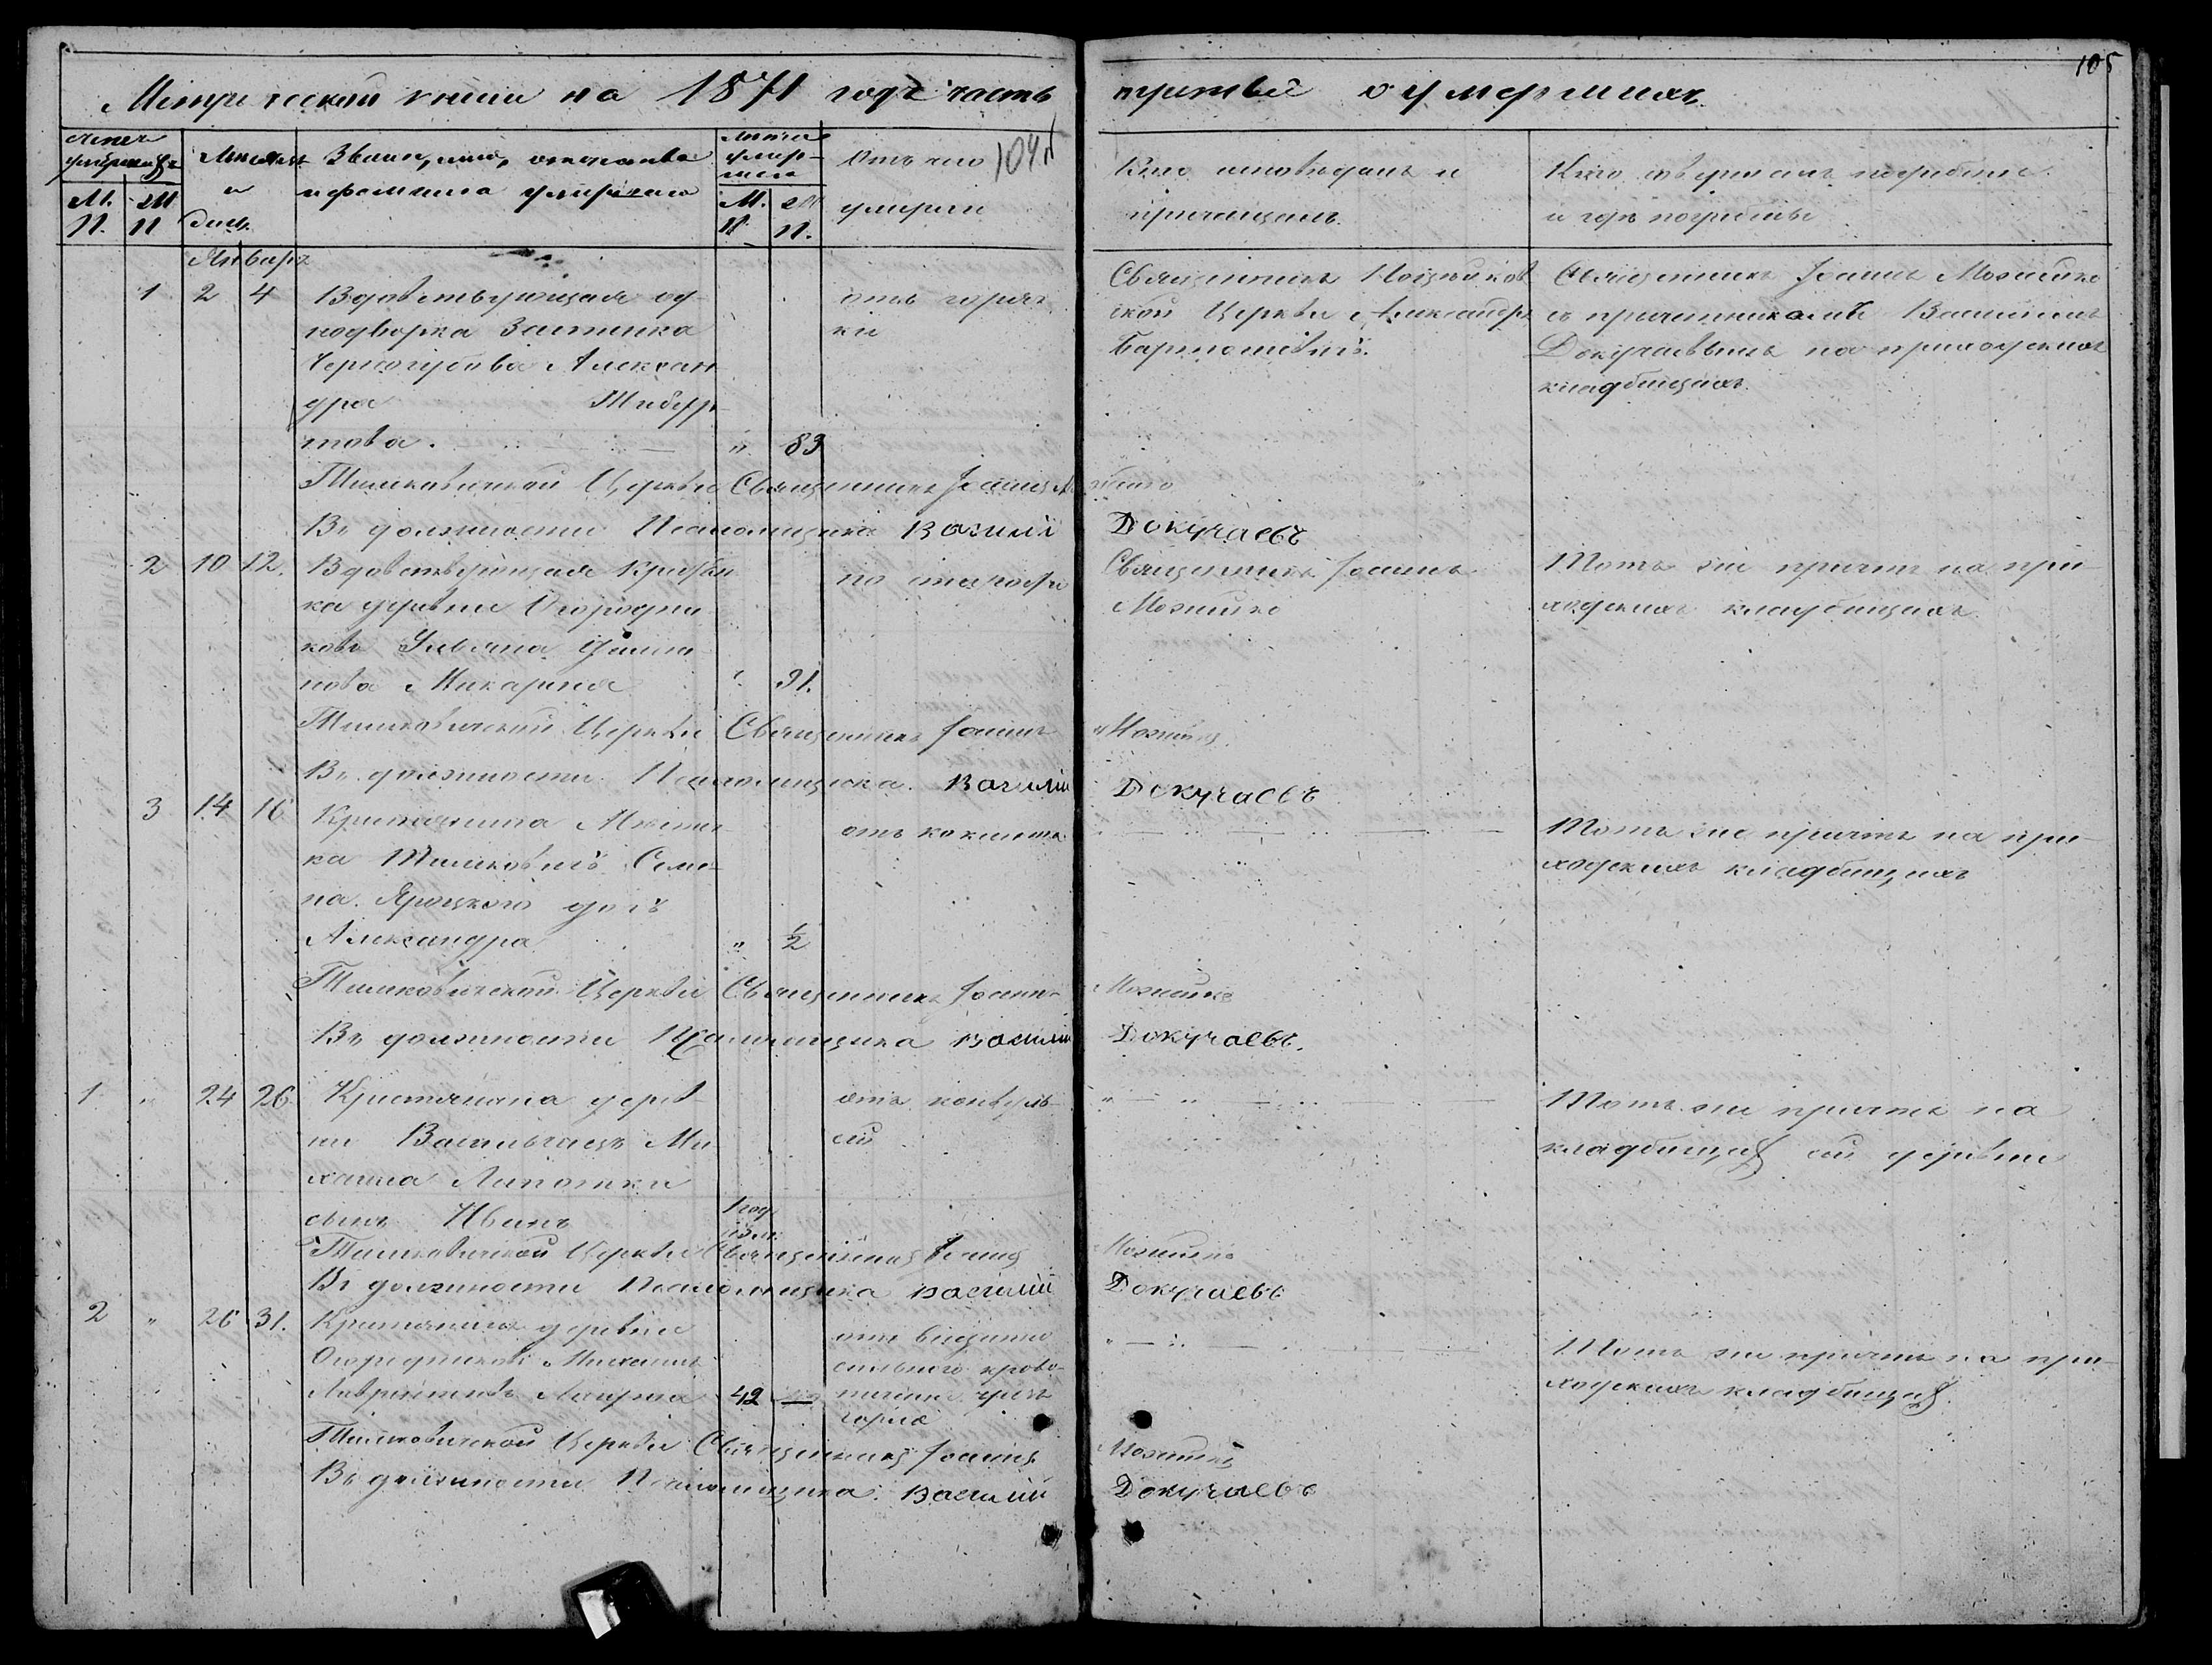 105
Метрической книги на 1871 годъ часть третья о умершихъ.
104
Мѣсяцъ и день.
Званіе, имя, отчество и фамилія умершаго
М. П.
М. П.
Отъ чего умеръ
Кто исповѣдалъ и причащалъ.
Кто совершалъ погребеніе и гдѣ погребены
Январь
1 2 4
Вдовствующая од-
нодворка Застенка
Черногубова Алексан
дра
това. " 89
отъ горяч
ки
Священникъ
ской Церкви Александръ
Священникъ Іоаннъ Можейко
съ причетникомъ Василіемъ
Докучаевымъ на приходскихъ
кладбищахъ.
Тимковичской Церкви Священникъ Іоаннъ
Въ должности Псаломщика Василій Докучаевъ
2 10 12.
Вдовствующая Крестьян
ка деревни Огородни
ковъ Ульяна
нова Макарня 91.
по старости
Священникъ Іоаннъ
Можейко
Тотъ же причтъ на при-
ходскихъ кладбищахъ.
Тимковичской Церкви Священникъ Іоаннъ Можейко
Въ должности Псаломщика Василій Докучаевъ
3 14 16
Крестьянина Мѣстеч-
ка Тимковичъ Семе-
на Яроцкого дочь
Александра " 1/2
отъ коклюша
Тотъ же причтъ на при-
ходскихъ кладбищахъ
Тимковичской Церкви Священникъ Іоаннъ Можейко
Въ должности Псаломщика Василій Докучаевъ.
1 " 24 26
Крестьянина дерев-
ни Васильчицъ Ми
хаила Липотки
сынъ Иванъ
отъ конвуль-
сій
Тотъ же причтъ на
кладбищахъ сей деревни
Тимковичской Церкви Священникъ Іоаннъ Можейко
Въ должности Псаломщика Василій Докучаевъ
2 " 26 31.
Крестьянинъ деревни
Огородниковъ Михаилъ
42 —
сильного крово-
теченія чрезъ
горло
Тотъ же причтъ на при-
ходскихъ кладбищахъ.
Тимковичской Церкви Священникъ Іоаннъ Можейко
Въ должности Псаломщика Василій Докучаевъ